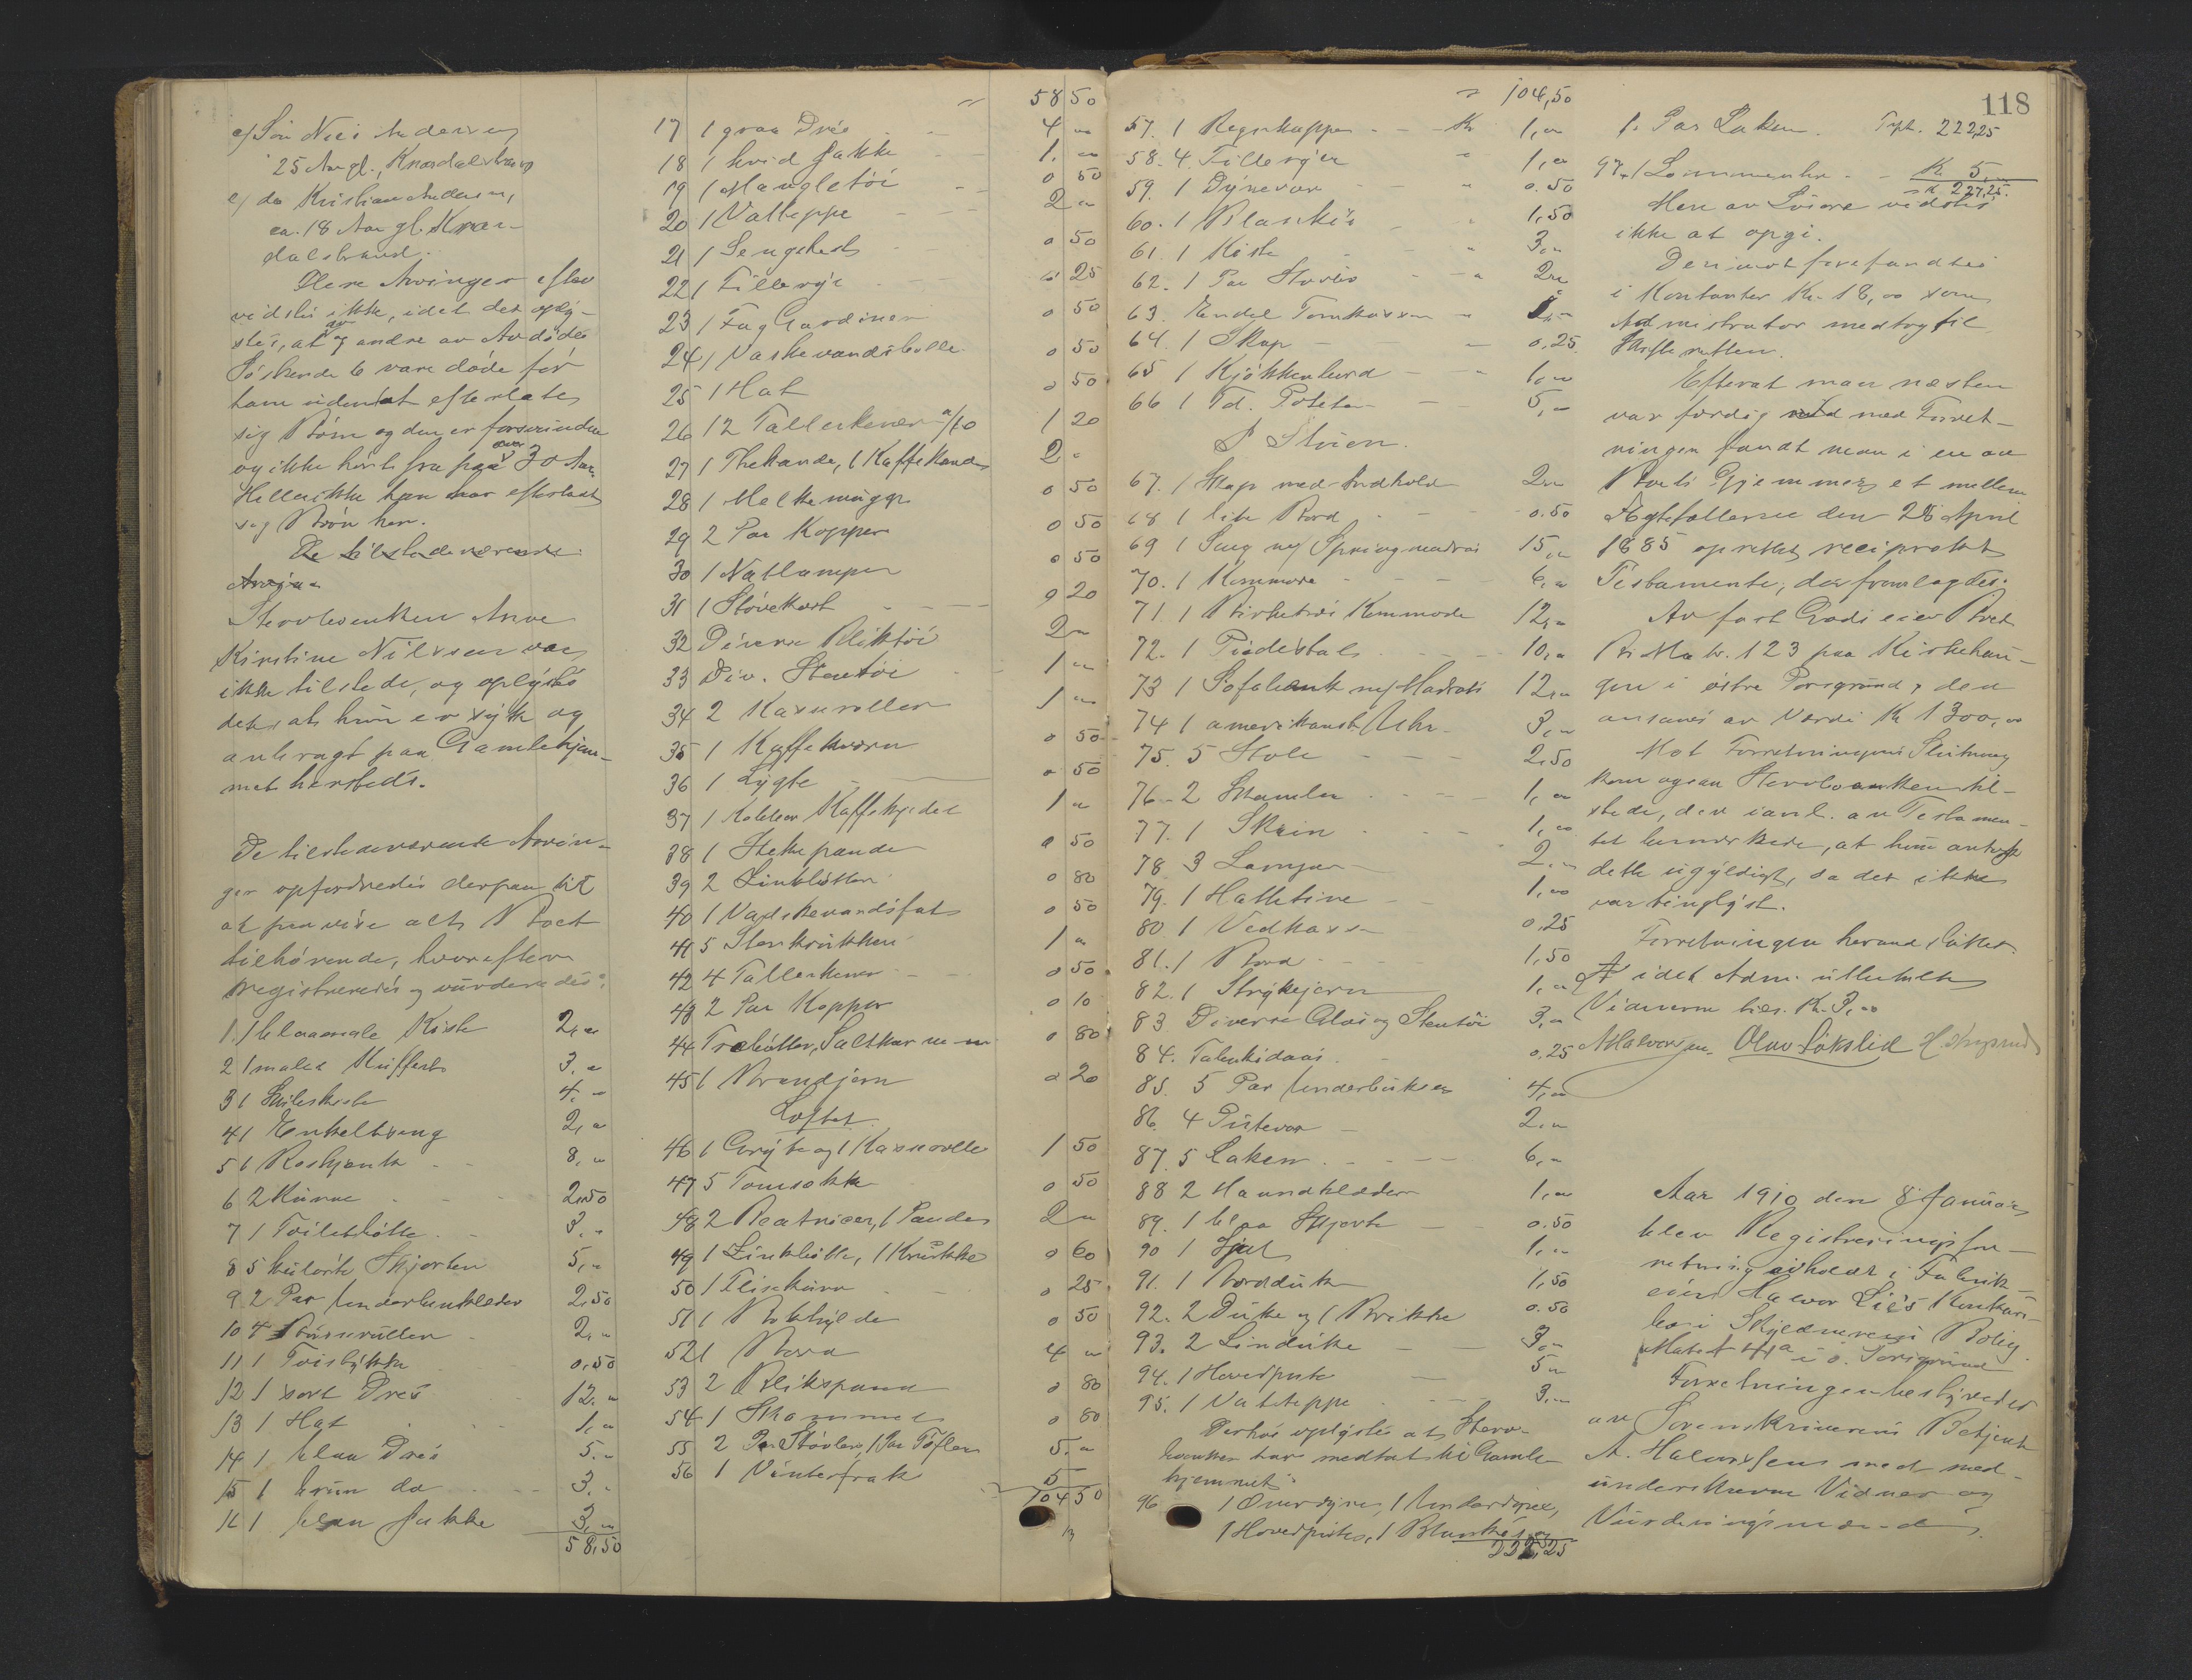 e/ Søn Nils Andersen
25 Aar gl., Knardalstrand
e/ do Kristian Andersen,
ca. 18 Aar gl. Knar-
dalstrand.
Flere Arvinger efter
vidstes ikke, idet det oply-
stes, at av andre av Avdødes
Søskende 6 vare døde før
ham uden at efterlate
sig Børn og den er forsvunden
og ikke hørt fra paa over 30 Aar.
Heller ikke han har efterladt
sig Børn her.
De tilstedeværende
Arvin
Stervboenken Anne
Kirstine Nilssen var
ikke tilstede, og oplystes
det, at hun er syk og
anbragt paa Gamlehjem-
met hersteds.
De tilstedeværende Arvin-
ger opfordredes derpaa til
at paavise alt Boet
tilhørende, hvorefter
registreredes og vurderedes:
1. 1 blaamalt Kiste 2,"
2 1 malet Kuffert 3,"
3 1 Skibskiste 4,"
4 1 Enkeltseng 2,"
5 1 Roskjænk 8,"
6 2 Kurve 2,50
7 1 Toiletbøtte 3,"
8 5 kulørte Skjorter 5,"
9 2 Par Underbenklæder 2,50
10 4 Busseruller 2,"
11 1 Toistykke 0,50
12 1 sort Dres 12,"
13 1 Hat 1,"
14 1 blaa Dres 5,"
15 1 brun do 3,"
16 1 blaa Jakke 3,"
58,50
" 58 50
17 1 graa Dres 4 "
18 1 hvid Jakke 1, "
19 1 Mangletøi 0 50
20 1 Vatteppe 2 "
21 1 Sengested 0 50
22 1 Fillerye 0 25
23 1 Fag Gardiner 0 50
24 1 Vaskevandsbolle 0 50
25 1 Hat 0 50
26 12 Tallerkener a/10 1 20
27 1 Thekande, 1 Kaffekande 2 "
28 1 Melkemugge 0 50
29 2 Par Kopper 0 50
30 1 Natlampe 0 50
31 1 Støvekost 0 20
32 Diverse Bliktøi 2 "
33 Div. Stentøi 1 "
34 2 Kasseroller 1 "
35 1 Kaffekvern 0 50
36 1 Lygte 0 50
37 1 Kobber Kaffekjedel 1 "
38 1 Stekepande 0 50
39 2 Zinkbøtter 0 80
40 1 Vaskevandsfat 0 50
41 5 Stenkrukker 1 "
42 4 Tallerkener 0 50
43 2 Par Kopper 0 10
44 Træbøtter, Saltkar m m 0 80
45 1 Brændjern 0 20
Loftet
46 1 Gryte og 1 Kasserolle 1 50
47 5 Tomsekke 0 50
48 2 Beatricer, 1 Pande 2 "
49 1 Zinkbøtte, 1 Krukke 0 60
50 1 Flisekurv 0 25
51 1 Bokhylde 0 50
52 1 Bord 4 "
53 2 Blikspand 0 80
54 1 Skammel 0 80
55 2 Par Støvler, 1 Par Tøfler 5. "
56 1 Vinterfrak 5
104 50
" 104,50
57. 1 Regnkappe Kr 1,"
58. 4 Filleryer " 1,"
59. 1 Dynevar " 0.50
60. 1 Blankis " 1,50
61. 1 Kiste " 3,"
62. 1 Par Støvler " 2,"
63. Endel Tomkasser " 1,"
64. 1 Skap " 0,25
65 1 Kjøkkenbord " 1,"
66 1 Td. Poteter 5,"
I Stuen.
67. 1 Skap med Indhold 2,"
68 1 lite Bord 0.50
69 1 Seng m/ Springmadras 15,"
70. 1 Kommode 6,"
71 1 Birketræs Kommode 12,"
72. 1 Piedestal 10,"
73 1 Sofabænk m/ Madrats 12,"
74 1 amerikansk Uhr 3,"
75. 5 Stole 2,50
76. 2 Skamler 1,"
77. 1 Skrin 1,"
78 3 Lamper 2,"
79. 1 Hattetine 1,"
80 1 Vedkasse 0,25
81. 1 Bord 1,50
82. 1 Strykejern 1,"
83 Diverse Glas og Stentøi 3,"
84. Tobaksdaas 0,25
85. 5 Par Underbukser 4,"
86. 4 Putevar 2,"
87. 5 Laken 6,"
88 2 Haandklæder 1,"
89. 1 blaa Skjorte 0.50
90 1 Sjal 1,"
91. 1 Borddug 1,50
92. 2 Duke og 1 Brikke 0.50
93. 2 Linduke 3,"
94. 1 Hovedpute 5,"
95. 1 Vatteppe 3,"
Derhos oplystes at Sterv-
boenken har medtat til Gamle-
hjemmet:
96 1 Overdyne, 1 Underdyne,
1 Hovedpute, 1 Blankis og
222,25
118
1 Par Laken. Tpt. 222,25
97. 1 Lommeuhr Kr 5,"
Kr. 227,25.
Mere av Løsøre vidstes
ikke at opgi.
Derimot forefandtes
i Kontanter Kr. 18,00 som
Administrator medtog til
Skifteretten.
Efterat man næsten
var færdig med Forret-
ningen fandt man i en av
Boets Gjemmer et mellem
Ægtefællerne den 28 April
1885 oprettet reciprokt
Testamente, der fremlagdes.
Av fast Gods eier Boet
Br. Ma. nr. 123 paa Kirkehau-
gen i østre Porsgrund, den
ansaaes av Værdi Kr 1300,00
Mot Forretningens Slutning
kom ogsaa Stervboenken til-
stede, der i anl. av Testamen-
tet bemerkede, at hun antok
dette ugyldigt, da det ikke
var tinglyst.
Forretningen herved sluttet
idet Adm. utbetalte
Vidnerne tils. Kr. 3,00
AHalvorsen. Olav Løkslid
Aar 1910 den 8 Januar
blev Registreringsfor-
retning avholdt i Fabrik-
eier Halvor Lie's Konkurs-
bo i Skjelmereis Bolig
Matr. № 44a i ø. Porsgrund
Forretningen bestyredes
av Sorenskriverens Betjent
A. Halvorsen med med-
underskrevne Vidner og
Vurderingsmænd.